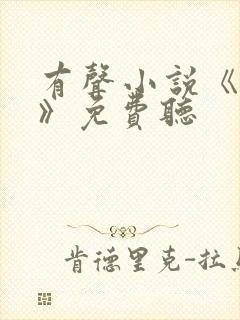 有聲小說《
》免費聽
肯德里克-拉